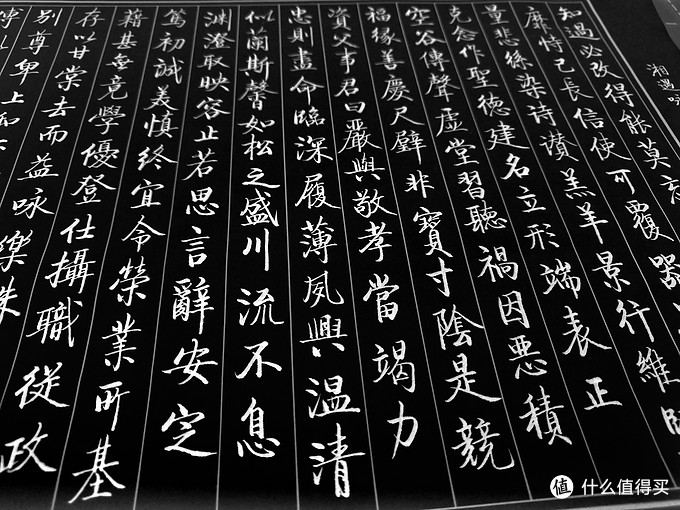 湘遇
知過必改得能莫忘
靡恃己長信使可覆器
墨悲絲染诗讚羔羊景行維
克念作聖德建名立形端表正
空谷傳聲虛堂習聽禍因惡積
福緣善慶尺璧非寶寸陰是競
資父事君曰嚴與敬孝當竭力
忠則盡命臨深履薄夙興温清
似蘭斯馨如松之盛川流不息
渊澄取映容止若思言辭安定
篤初誠美慎終宜令榮業所基
藉甚無竟學優登仕攝職從政
存以甘棠去而益咏樂殊
別尊卑上和
值 什么值得买